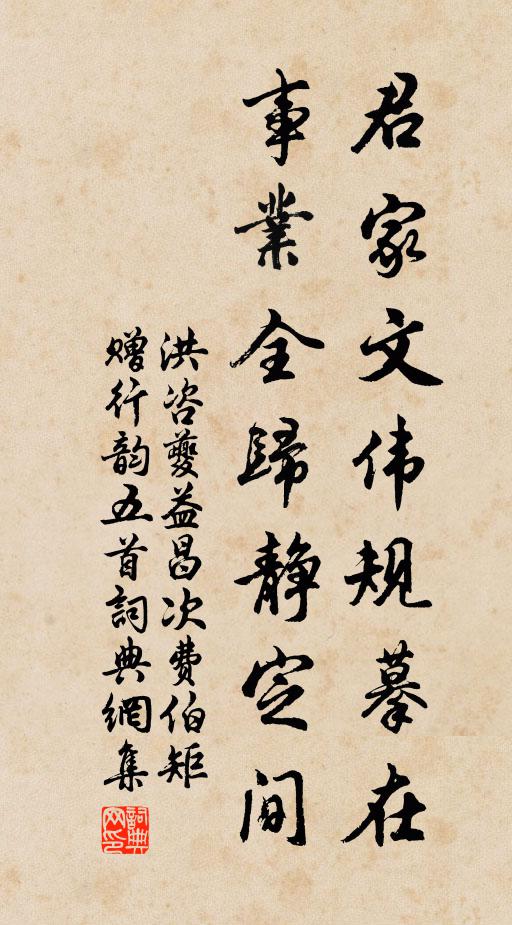 君家文伟规摹在
事業全歸静定间
洪咨夔益昌次费伯矩
赠行韵五首詞典網集
詞典网印